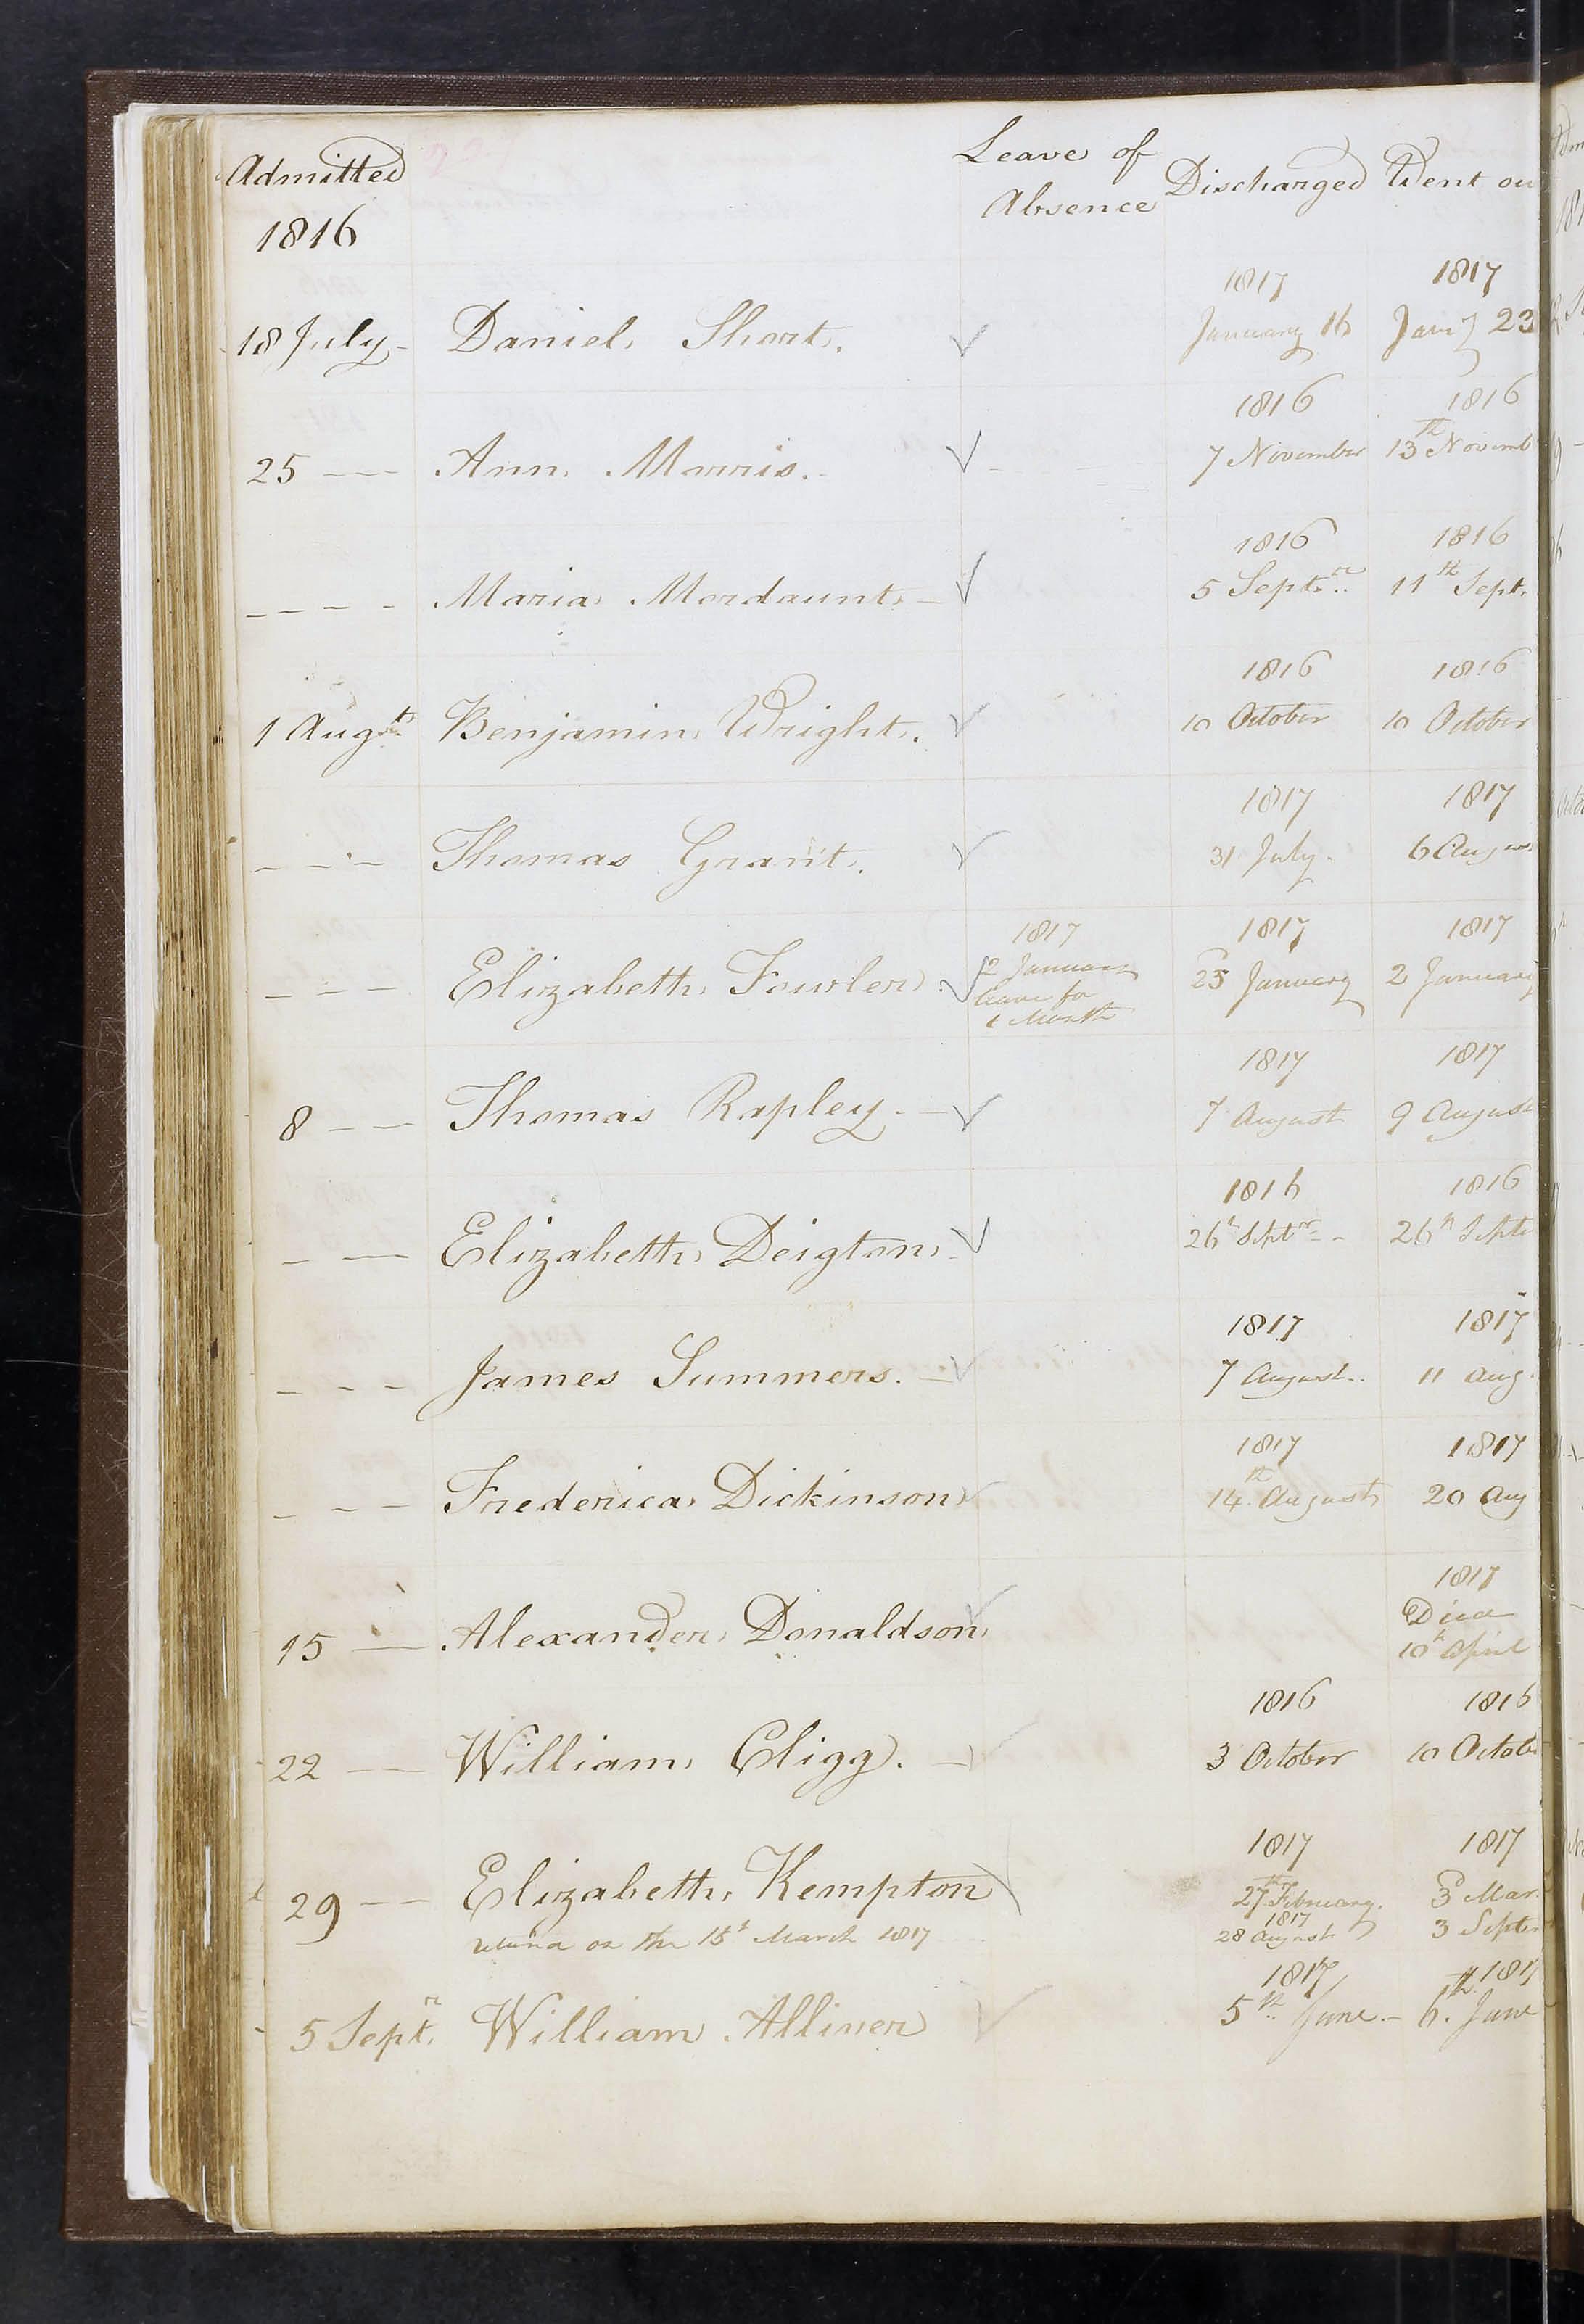 Admitted Leave of Absence Discharged Went ou
1816
1817 1817
18 July Daniel Short. January 16 Jany 23
1816 1816
25 Ann Morris. 7 November 13th Novemb
1816 1816
Maria Mordaunt 5 Septr 11th Sept.
1816 1816
1 Augt Benjamin Wright. 10 October 10 October
1817 1817
Thomas Grant. 31 July. 6 August
1817 1817 1817
Elizabeth Fowler. 2 January 23 January 2 January
leave for
1 Month
1817 1817
8 Thomas Rapley. 7 August 9 August
1816 1816
Elizabeth Deigton 26th Septr 26th Septe
1817 1817
James Summers. 7 August 11 Aug
1817 1817
Frederica Dickinson 14th August 20 Aug
1817
Died
15 Alexander Donaldson 10th April
1816 1816
22 William Cligg. 3 October 10 Octobe
1817 1817
29 Elizabeth Kempton 27th February. 3 Mar
1817
on the 15th March 1817 28 August 3 Septem
1817 1817
5 Septr. William Alliner 5th June. 6th. June